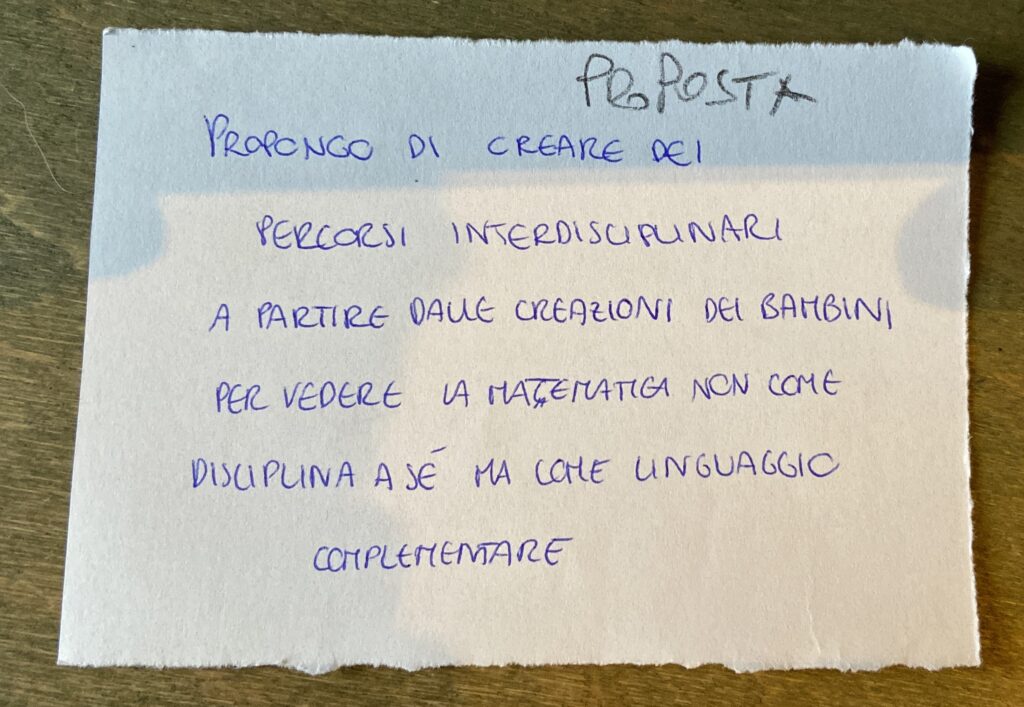 PROPOSTA
PROPONGO DI CREARE DEI
PERCORSI INTERDISCIPLINARI
A PARTIRE DALLE CREAZIONI DEI BAMBINI
PER VEDERE LA MATEMATICA NON COME
DISCIPLINA A SÉ MA COME LINGUAGGIO
COMPLEMENTARE